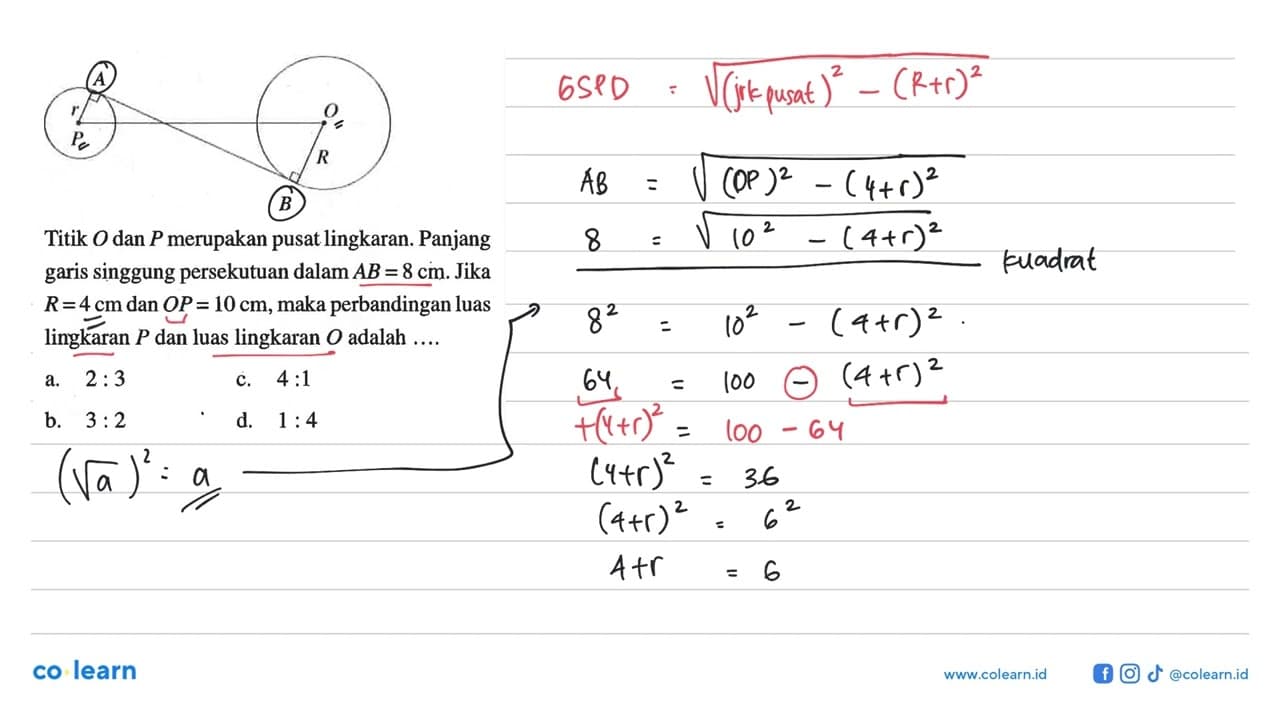 A
r
P
O
R
B
Titik O dan P merupakan pusat lingkaran. Panjang
garis singgung persekutuan dalam AB = 8 cm. Jika
R = 4 cm dan OP = 10 cm, maka perbandingan luas
lingkaran P dan luas lingkaran O adalah ....
a. 2 : 3 c. 4 : 1
b. 3 : 2 d. 1 : 4
(√a)² = a
GSPD = √(jrk pusat)² - (R+r)²
AB = √(OP)² - (4+r)²
8 = √10² - (4+r)²
kuadrat
8² = 10² - (4+r)²
64 = 100 - (4+r)²
+(4+r)² = 100 - 64
(4+r)² = 36
(4+r)² = 6²
4+r = 6
co learn
www.colearn.id
@colearn.id